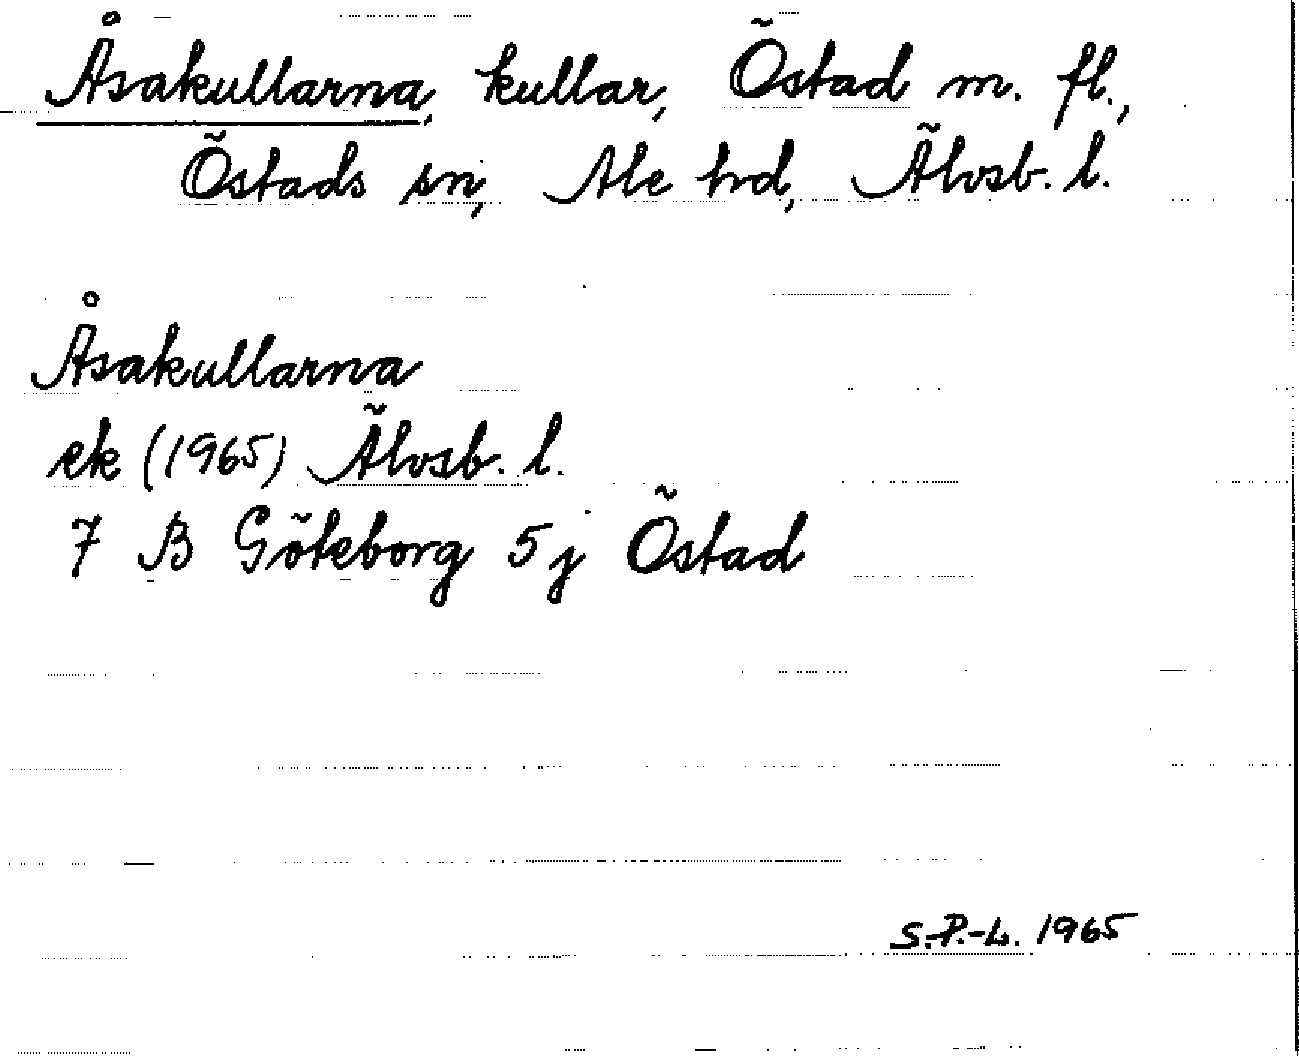 Åsakullarna, kullar, Östad m. fl.,
Östads sn, Ale hd, Älvsb. l.
Åsakullarna
ek (1965) Älvsb. l.
7 B Göteborg 5 j Östad
S.P.-L. 1965